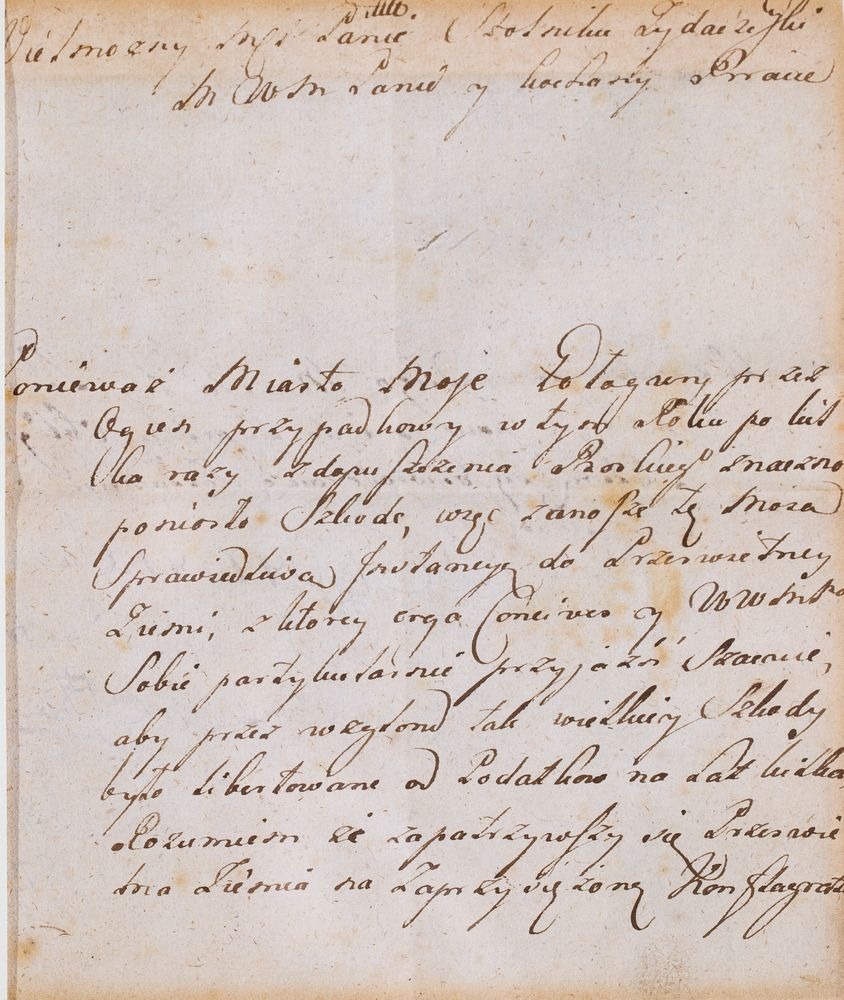 Wielmozny Mci Panie Stolniku Zydaczewski
M WM Panie y kochany Bracie
Poniewasz Miasto Moje przez
Ogien przypadkowy w tym Roku po kil
ka razy z dopuszczenia Boskiego znaczno
poniosło Szkodę, więc zanoszę tę Moią
Sprawiedliwą Instancyę do Prześwietney
Ziemi, z ktorey erga Concives y WWMPa
Sobie partykularnie przyjaźń Szacuię,
aby przez wzgląd tak wielkiey Szkody
było libertowane od Podatkow na Lat kilka,
Rozumiem że zapatrzywszy się Prześwie
tna Ziemia na Zaprzysiężoną Konflagrat